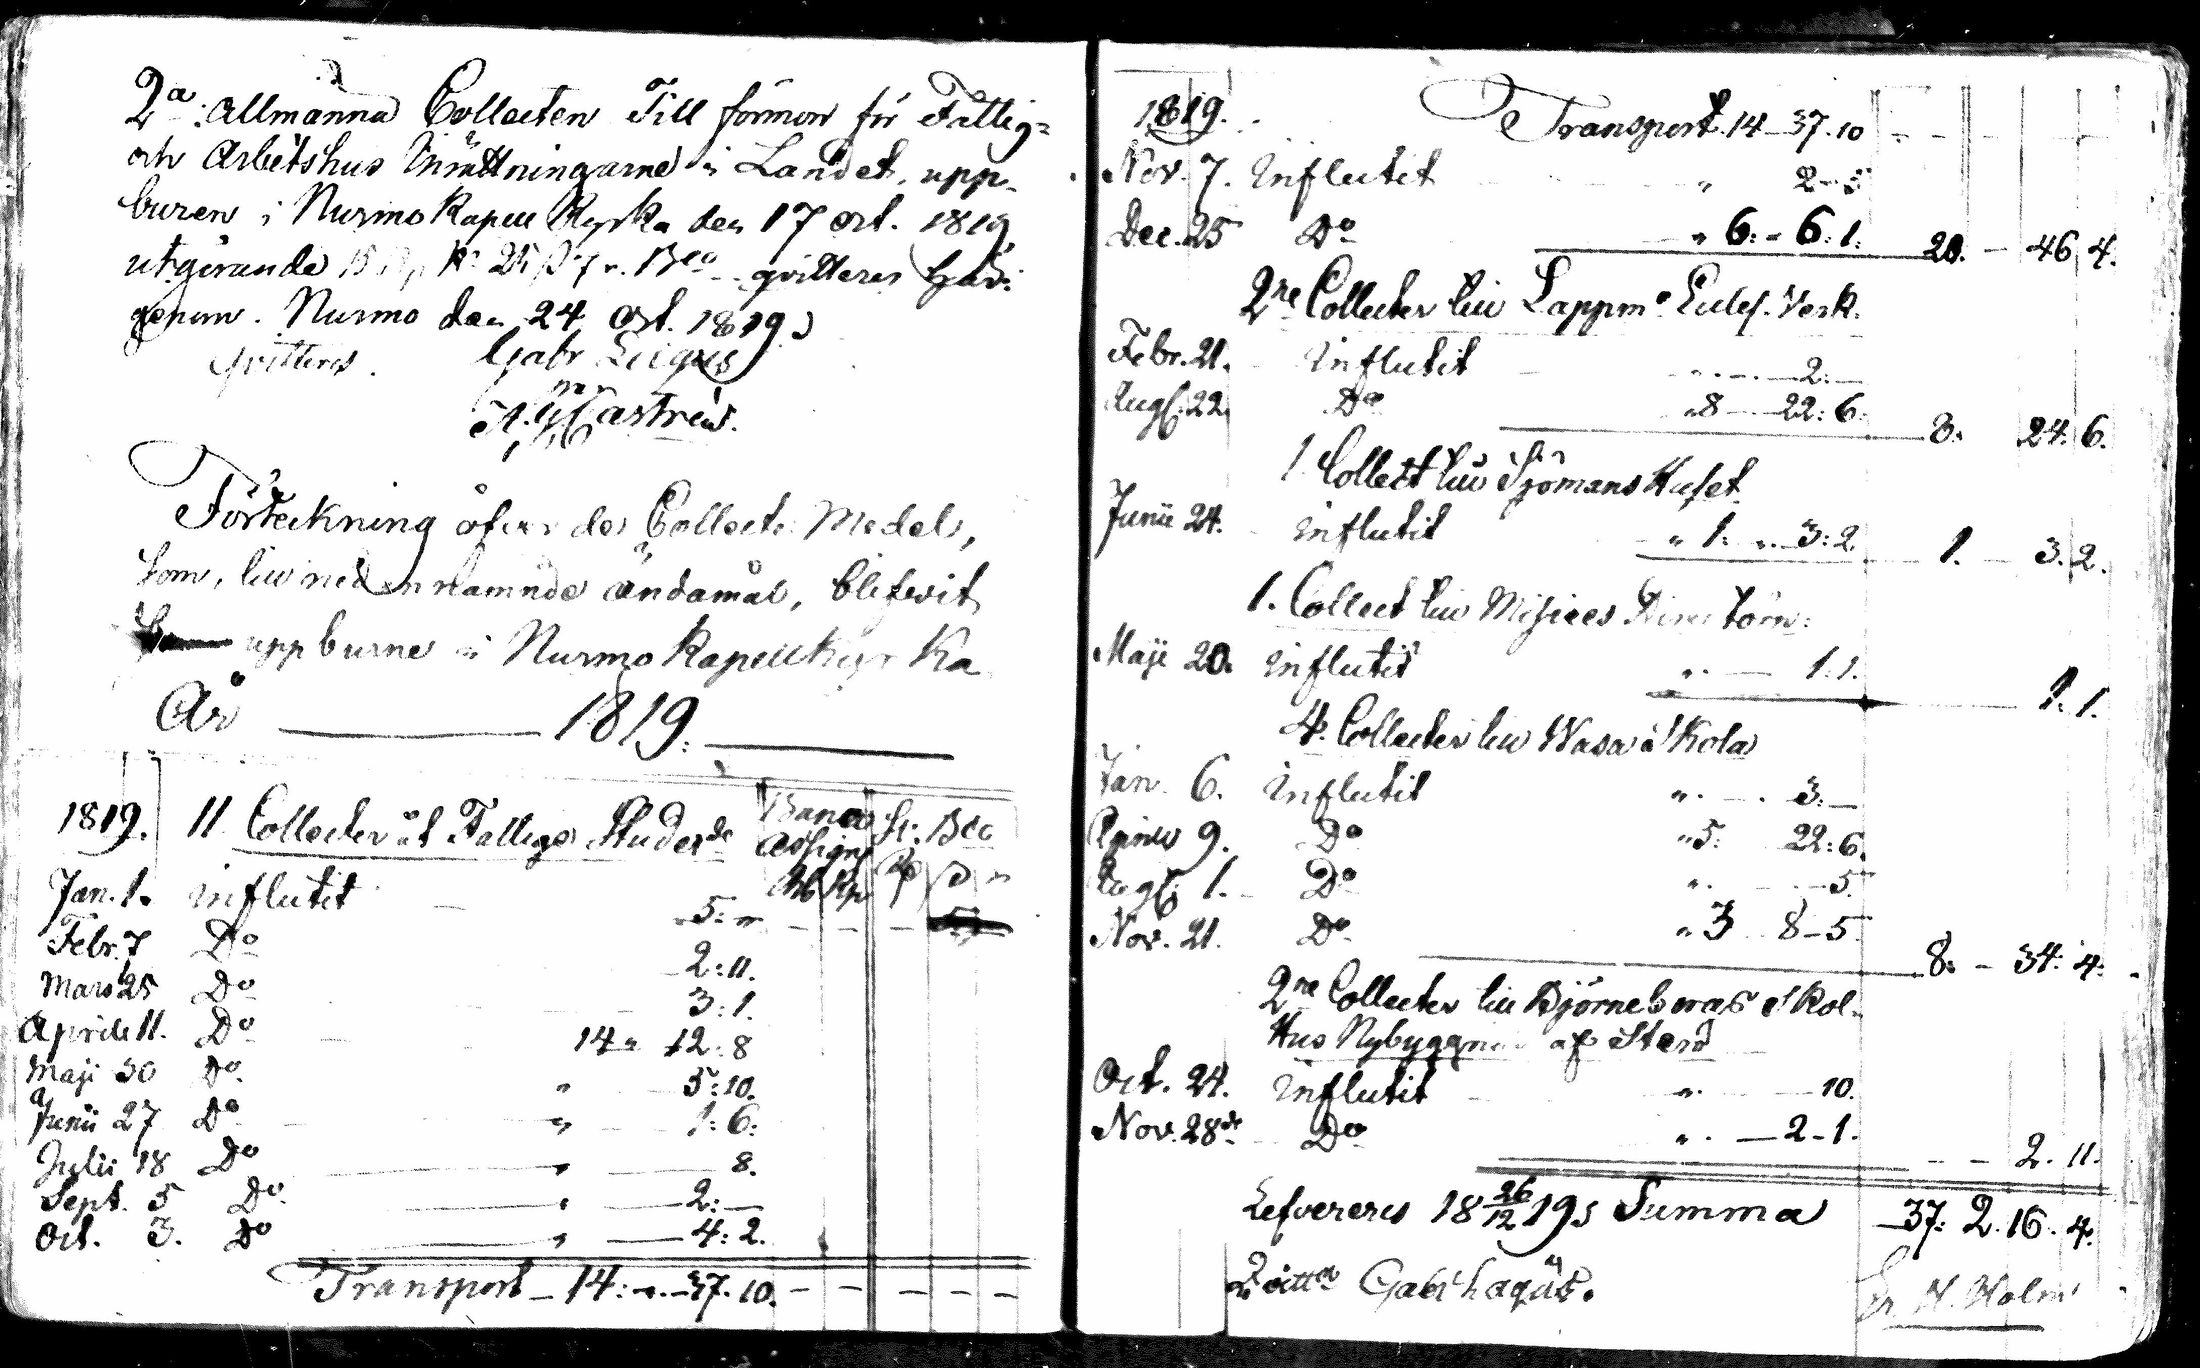 2a. Allmänna Collecten Till förmon för Fattig=
och Arbetshus Inrättningarne i Landet, upp-
buren i Nurmo Kapell Kyrka den 17 Oct. 1819
utgörande 15 Kp. 25 Bco qvitteras här-
igenom. Nurmo den 24 Oct. 1819.
Qvitteras. Gabr
A. G. Castrén.
Förteckning öfver de Collecte Medel,
som, till nedannämnde ändamål, blifwit
uppburne i Nurmo Kapellkyrka
År 1819.
1819. 11 Collecter åt Fattiga Studerde Banco Assign Rb Kp Sr. Bco
Jan. 1. Influtit 5:
Febr. 7 Do 2:11.
Mars 25 Do 3:1.
Aprile 11. Do 14 " 12:8
Maji 30 Do " 5:10.
Junii 27 Do " 1:6.
Julii 18 Do " 8.
Sept. 5 Do " 2:—
Oct. 3. Do " 4:2.
Transport 14: " 37.10.
1819. Transport 14 37.10
Nov. 7. Influtit " 2-5
Dec. 25 Do " 6: - 6:1. 20. - 46 4.
2ne Collecter till Lappm. Eccles. Verk.
Febr. 21. Influtit 2:—
Aug. 22. Do " 8 22:6. 8. 24. 6.
1 Collect till Sjömans Huset
Junii 24. Influtit " 1. " 3:2. 1. 3. 2.
1. Collect till
Maji 20. Influtit " 1.1. 1. 1.
4. Collecter till Wasa Skola
Jan. 6. Influtit " 3.—
Aprill 9. Do " 5: 22:6.
Aug. 1. Do " 5.
Nov. 21. Do " 3 8-5 8: - 34: 4.
2ne Collecter till Björneborgs Skol-
Hus Nybyggnad af Sten
Oct. 24. Influtit " 10.
Nov. 28de Do " 2-1. 2. 11.
Lefvereras 18 26/12 19. Summa 37: 2. 16. 4.
Gabr H. Holm